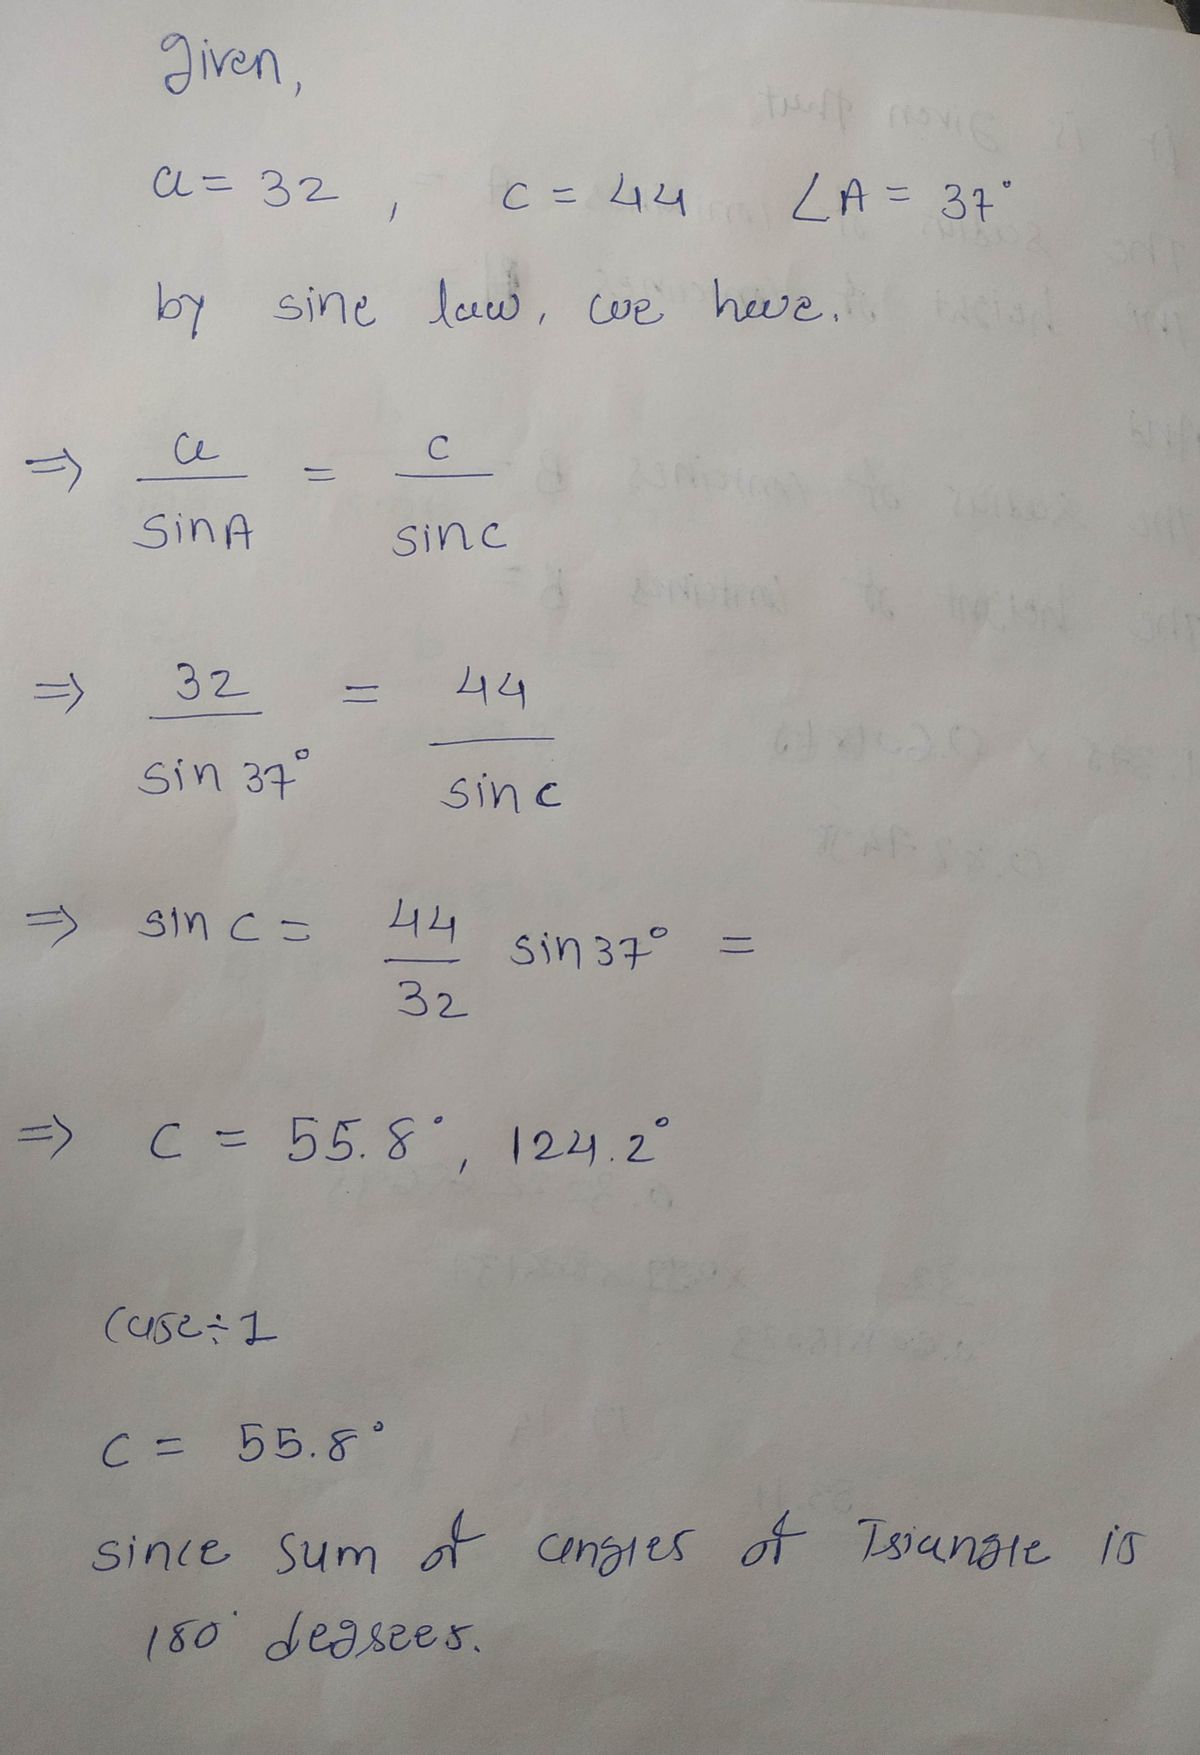 Given,
a = 32 , c = 44 ∠A = 37°
by sine law, we have.
⇒ a/sin A = c/sin C
⇒ 32/sin 37° = 44/sin C
⇒ sin C = 44/32 sin 37° =
⇒ C = 55.8°, 124.2°
Case ÷ 1
C = 55.8°
since sum of angles of Triangle is
180° degrees.